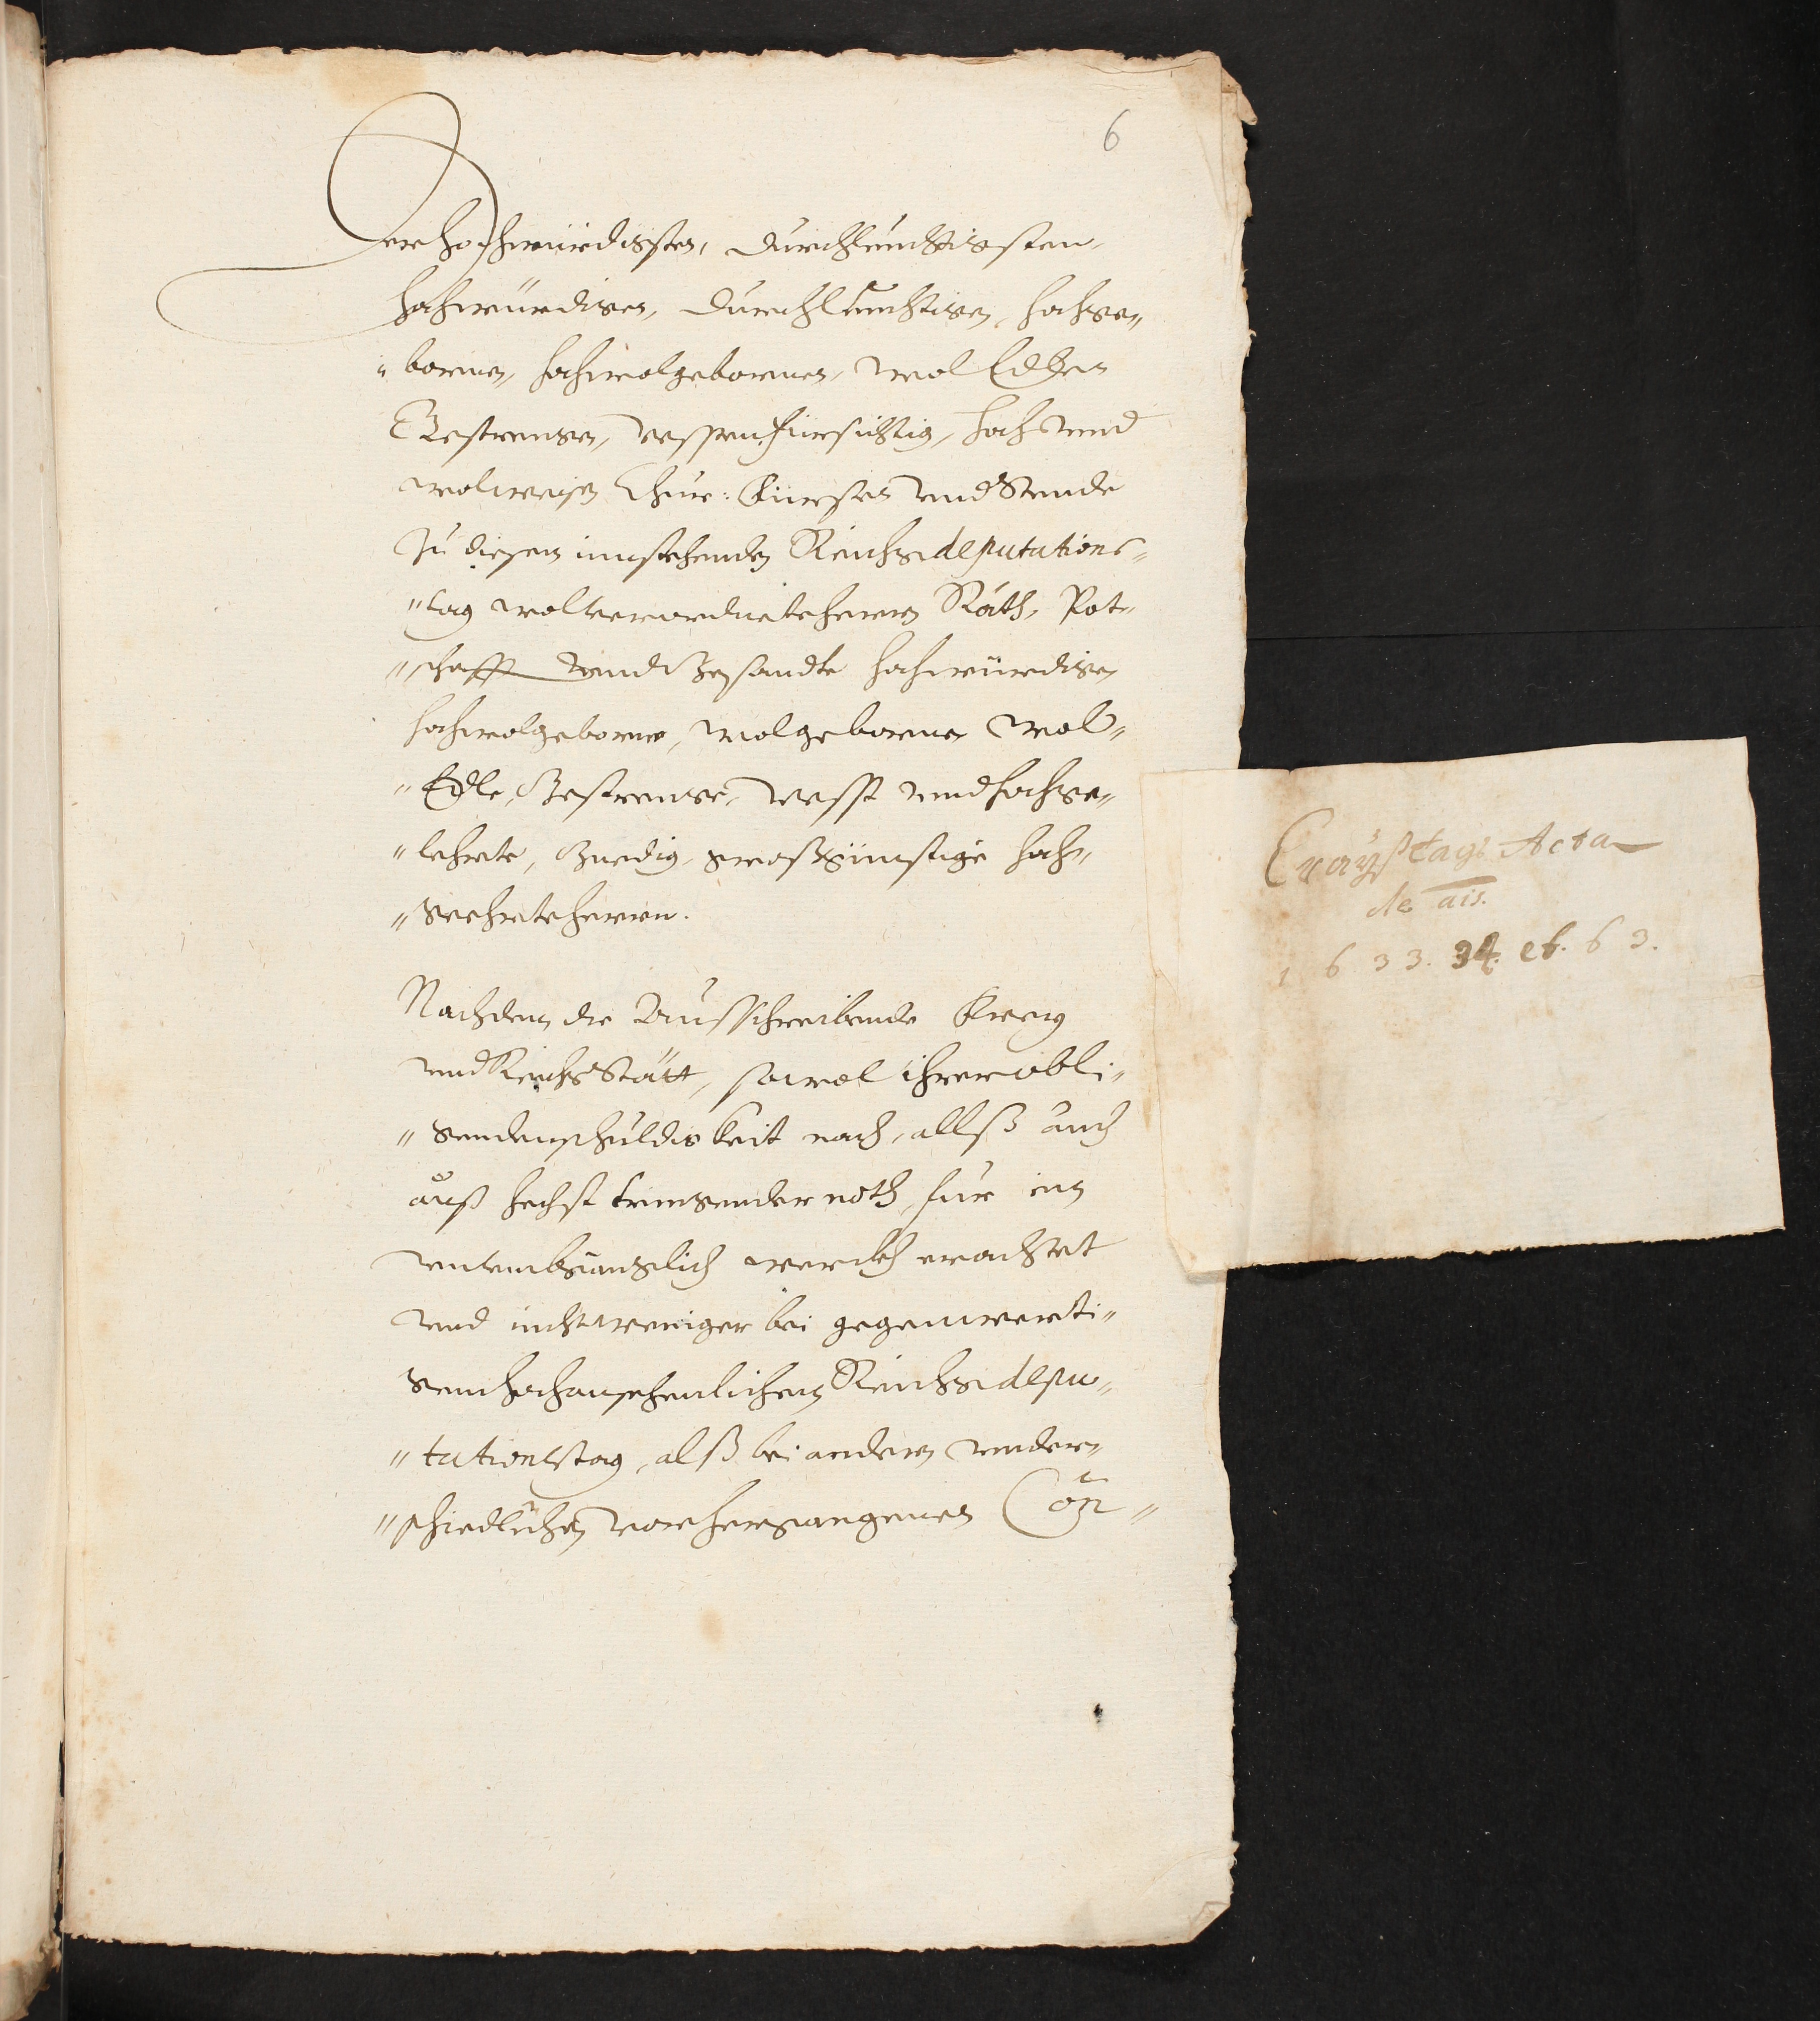 6
Der hochwürdigsten, Durchleuchtigsten,
hochwürdigen, Durchleuchtigen, hochge„
„bornen, hochwolgebornen, wol Edlen
Gestrengen, vessten fürsichtig, hoch vnd
wolweisen Chur: Fürsten vnd Stende
Zu diesem innstehenden Reichsdeputations„
„tag wolverordnete herren Räth, Pot„
„schafft vnnd Gesandte hochwürdigen
hochwolgeborne, wolgeborne wol„
„Edle, Gestrenge, vesst vnnd hochge„
„lehrte, Gnedig, großgünstige hoch„
„geehrte herren.
Nachdem die Ausschreibende Kreiß
vnd Reichs Stätt, sowol ihrer obli„
„genden schuldigkeit nach, allß auch
auß hechst tringender noth, für ein
vnvmbgänglich werckh erachtet
vnd nicht weniger bei gegenwerti„
gem hochansehenlichem Reichsdepu„
„tationstag, alß bei andern vnder„
„schiedlichen vorhergangenen Con„
Crayßtags Acta
de ais.
1633. 34. et. 63.